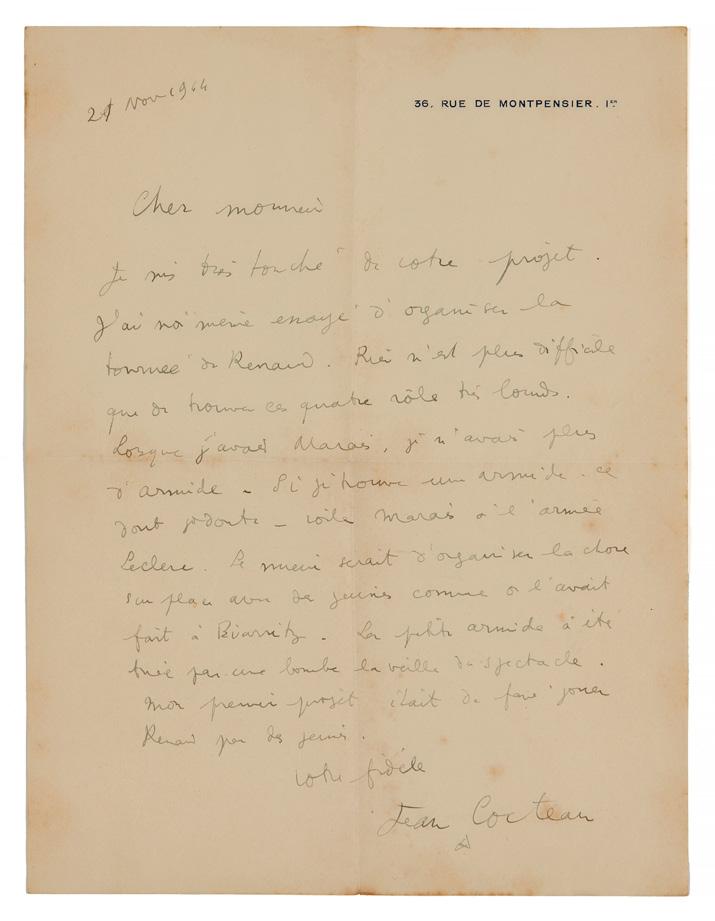 21 Nov 1944
36, RUE DE MONTPENSIER. 1ER
Cher monsieur
Je suis très touché de votre projet.
J'ai moi même essayé d'organiser la
tournée de Renaud. Rien n'est plus difficile
que de trouver ces quatre rôle très lourds.
Lorsque j'avais Marais, je n'avais plus
d'armide - Si je trouve une armide - ce
dont je doute - voilà Marais à l'armée
Leclerc. Le mieux serait d'organiser la chose
sur place avec des jeunes comme on l'avait
fait à Biarritz. La petite armide à été
tuée par une bombe la veille du spectacle.
Mon premier projet était de faire jouer
Renaud par des jeunes.
votre fidèle
Jean Cocteau